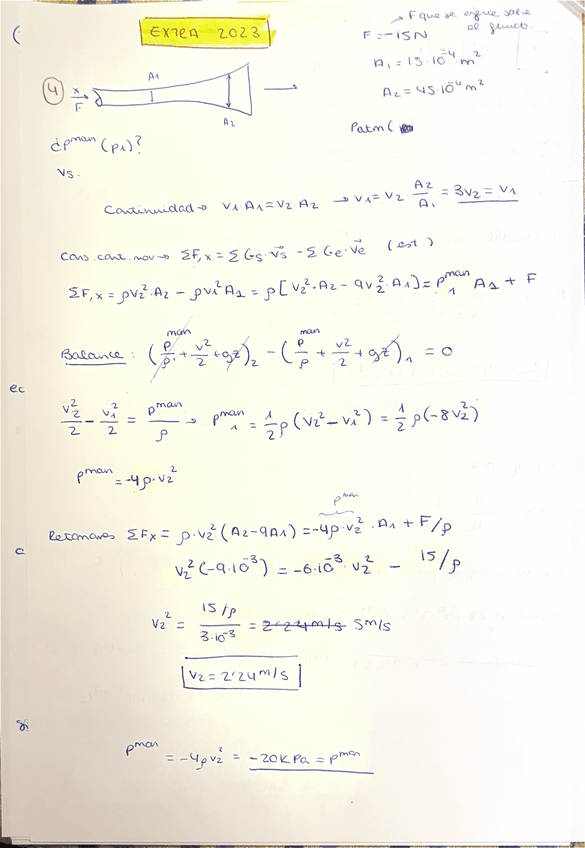 EXTRA 2023
→ F que se ejerce sobre
el fluido.
F = -15N
A₁ = 15·10⁻⁴ m²
A₂ = 45·10⁻⁴ m²
4
x
F
A₁
A₂
Patm (
¿pᵐᵃⁿ (p₁)?
Vs.
Continuidad → V₁·A₁ = V₂ A₂ → V₁ = V₂ A₂/A₁ = 3V₂ = V₁
Cons. cant. mov → ΣF,x = Σ Gs·v⃗s - Σ Ge·v⃗e (est.)
ΣF,x = ρV₂²·A₂ - ρV₁²A₁ = ρ[V₂²·A₂ - 9V₂²·A₁] = p₁ᵐᵃⁿ A₁ + F
Balance: (pᵐᵃⁿ/ρ + v²/2 + gz)₂ - (pᵐᵃⁿ/ρ + v²/2 + gz)₁ = 0
ec
V₂²/2 - V₁²/2 = pᵐᵃⁿ/ρ → p₁ᵐᵃⁿ = 1/2 ρ(V₂² - V₁²) = 1/2 ρ(-8V₂²)
pᵐᵃⁿ = -4ρ·V₂²
pᵐᵃⁿ
Retomamos ΣFx = ρ·V₂²(A₂-9A₁) = -4ρ·V₂²·A₁ + F/ρ
c
V₂²(-9·10⁻³) = -6·10⁻³·V₂² - 15/ρ
V₂² = (15/ρ)/(3·10⁻³) = 2'24m/s 5m/s
V₂ = 2'24 m/s
pᵐᵃⁿ = -4ρV₂² = -20KPa = pᵐᵃⁿ